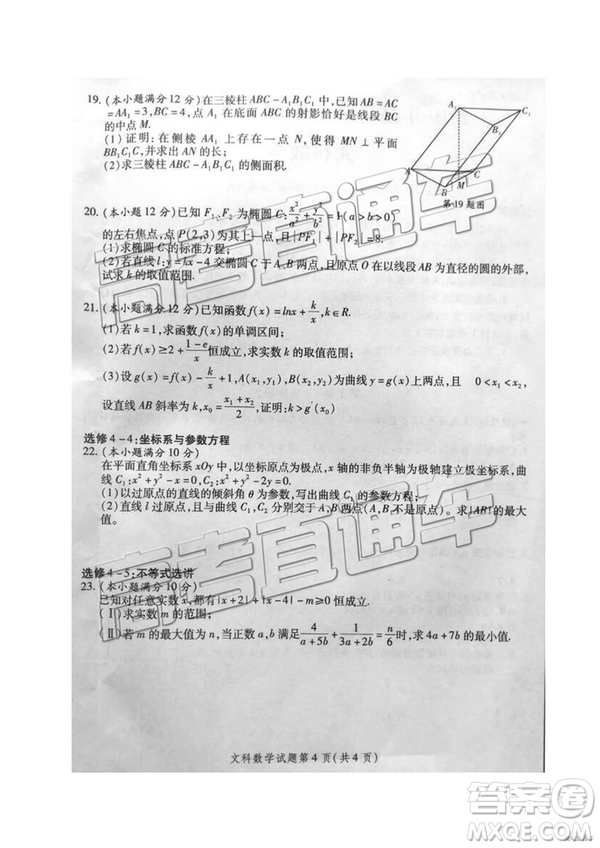 19. (本小题满分12分)在三棱柱ABC-A₁B₁C₁中,已知AB=AC
=AA₁=3,BC=4,点A₁在底面ABC的射影恰好是线段BC
的中点M.
(1)证明:在侧棱AA₁上存在一点N,使得MN⊥平面
BB₁C₁C,并求出AN的长;
(2)求三棱柱ABC-A₁B₁C₁的侧面积.
A₁
C₁
B₁
A
M
C
B
第19题图
20. (本小题12分)已知F₁、F₂为椭圆C:x²/a²+y²/b²=1(a>b>0)
的左右焦点,点P(2,3)为其上一点,且|PF₁|+|PF₂|=8.
(1)求椭圆C的标准方程;
(2)若直线l:y=kx-4交椭圆C于A、B两点,且原点O在以线段AB为直径的圆的外部,
试求k的取值范围.
21. (本小题满分12分)已知函数f(x)=lnx+k/x,k∈R.
(1)若k=1,求函数f(x)的单调区间;
(2)若f(x)≥2+(1-e)/x恒成立,求实数k的取值范围;
(3)设g(x)=xf(x)-k+1,A(x₁,y₁),B(x₂,y₂)为曲线y=g(x)上两点,且 0<x₁<x₂,
设直线AB斜率为k,x₀=(x₁+x₂)/2,证明:k>g′(x₀)
选修4-4:坐标系与参数方程
22. (本小题满分10分)
在平面直角坐标系xOy中,以原点O为极点,x轴的非负半轴为极轴建立极坐标系,曲
线C₁:x²+y²-4x=0,C₂:x²+y²-2y=0.
(1)以过原点的直线的倾斜角θ为参数,写出曲线C₁的参数方程;
(2)直线l过原点,且与曲线C₁,C₂分别交于A,B两点(A,B不是原点)。求|AB|的最大
值。
选修4-5:不等式选讲
23. (本小题满分10分)
已知对任意实数x,都有|x+2|+|x-4|-m≥0恒成立.
(Ⅰ)求实数m的范围;
(Ⅱ)若m的最大值为n,当正数a,b满足4/(a+5b)+1/(3a+2b)=n/6时,求4a+7b的最小值.
文科数学试题第4页(共4页)
高考直通车
高考直通车
高考直通车
答案圈
MXQE.COM